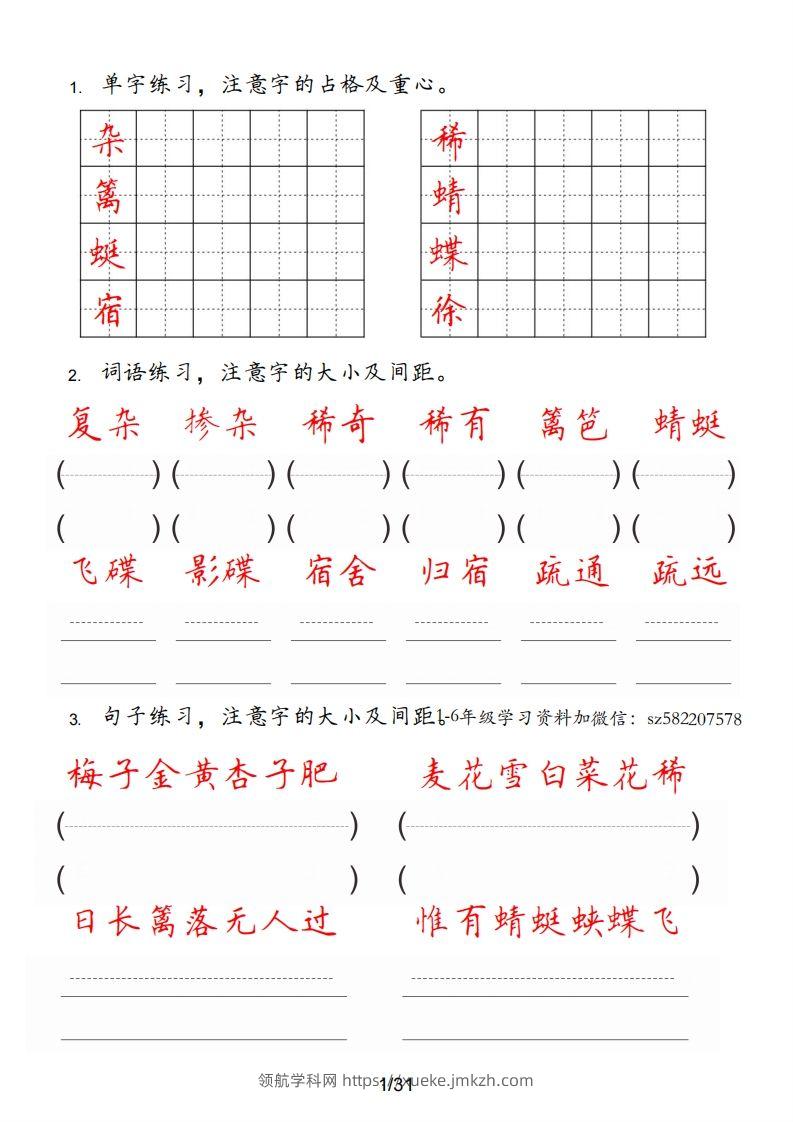 1. 单字练习，注意字的占格及重心。
杂 稀
篱 蜻
蜓 蝶
宿 徐
2. 词语练习，注意字的大小及间距。
复杂 掺杂 稀奇 稀有 篱笆 蜻蜓
( ) ( ) ( ) ( ) ( ) ( )
( ) ( ) ( ) ( ) ( ) ( )
飞碟 影碟 宿舍 归宿 疏通 疏远
3. 句子练习，注意字的大小及间距。1-6年级学习资料加微信：sz582207578
梅子金黄杏子肥 麦花雪白菜花稀
( ) ( )
( ) ( )
日长篱落无人过 惟有蜻蜓蛱蝶飞
领航学科网 https://xueke.jmkzh.com
1/31